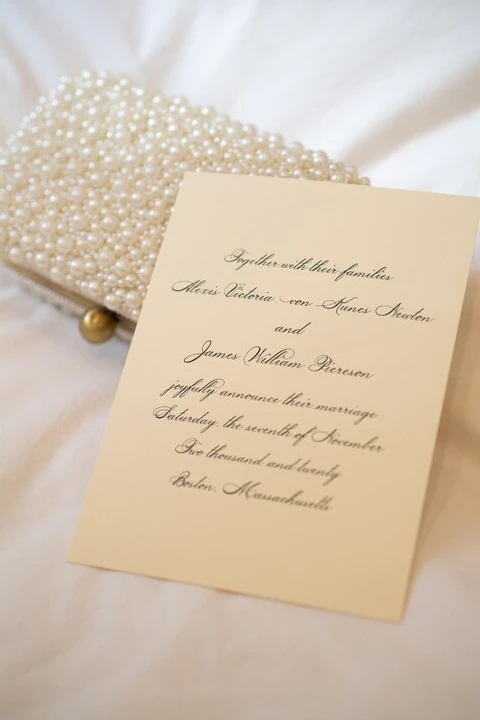 Together with their families
Alexis Victoria von Kunes Newton
and
James William Piereson
joyfully announce their marriage
Saturday, the seventh of November
Two thousand and twenty
Boston, Massachusetts